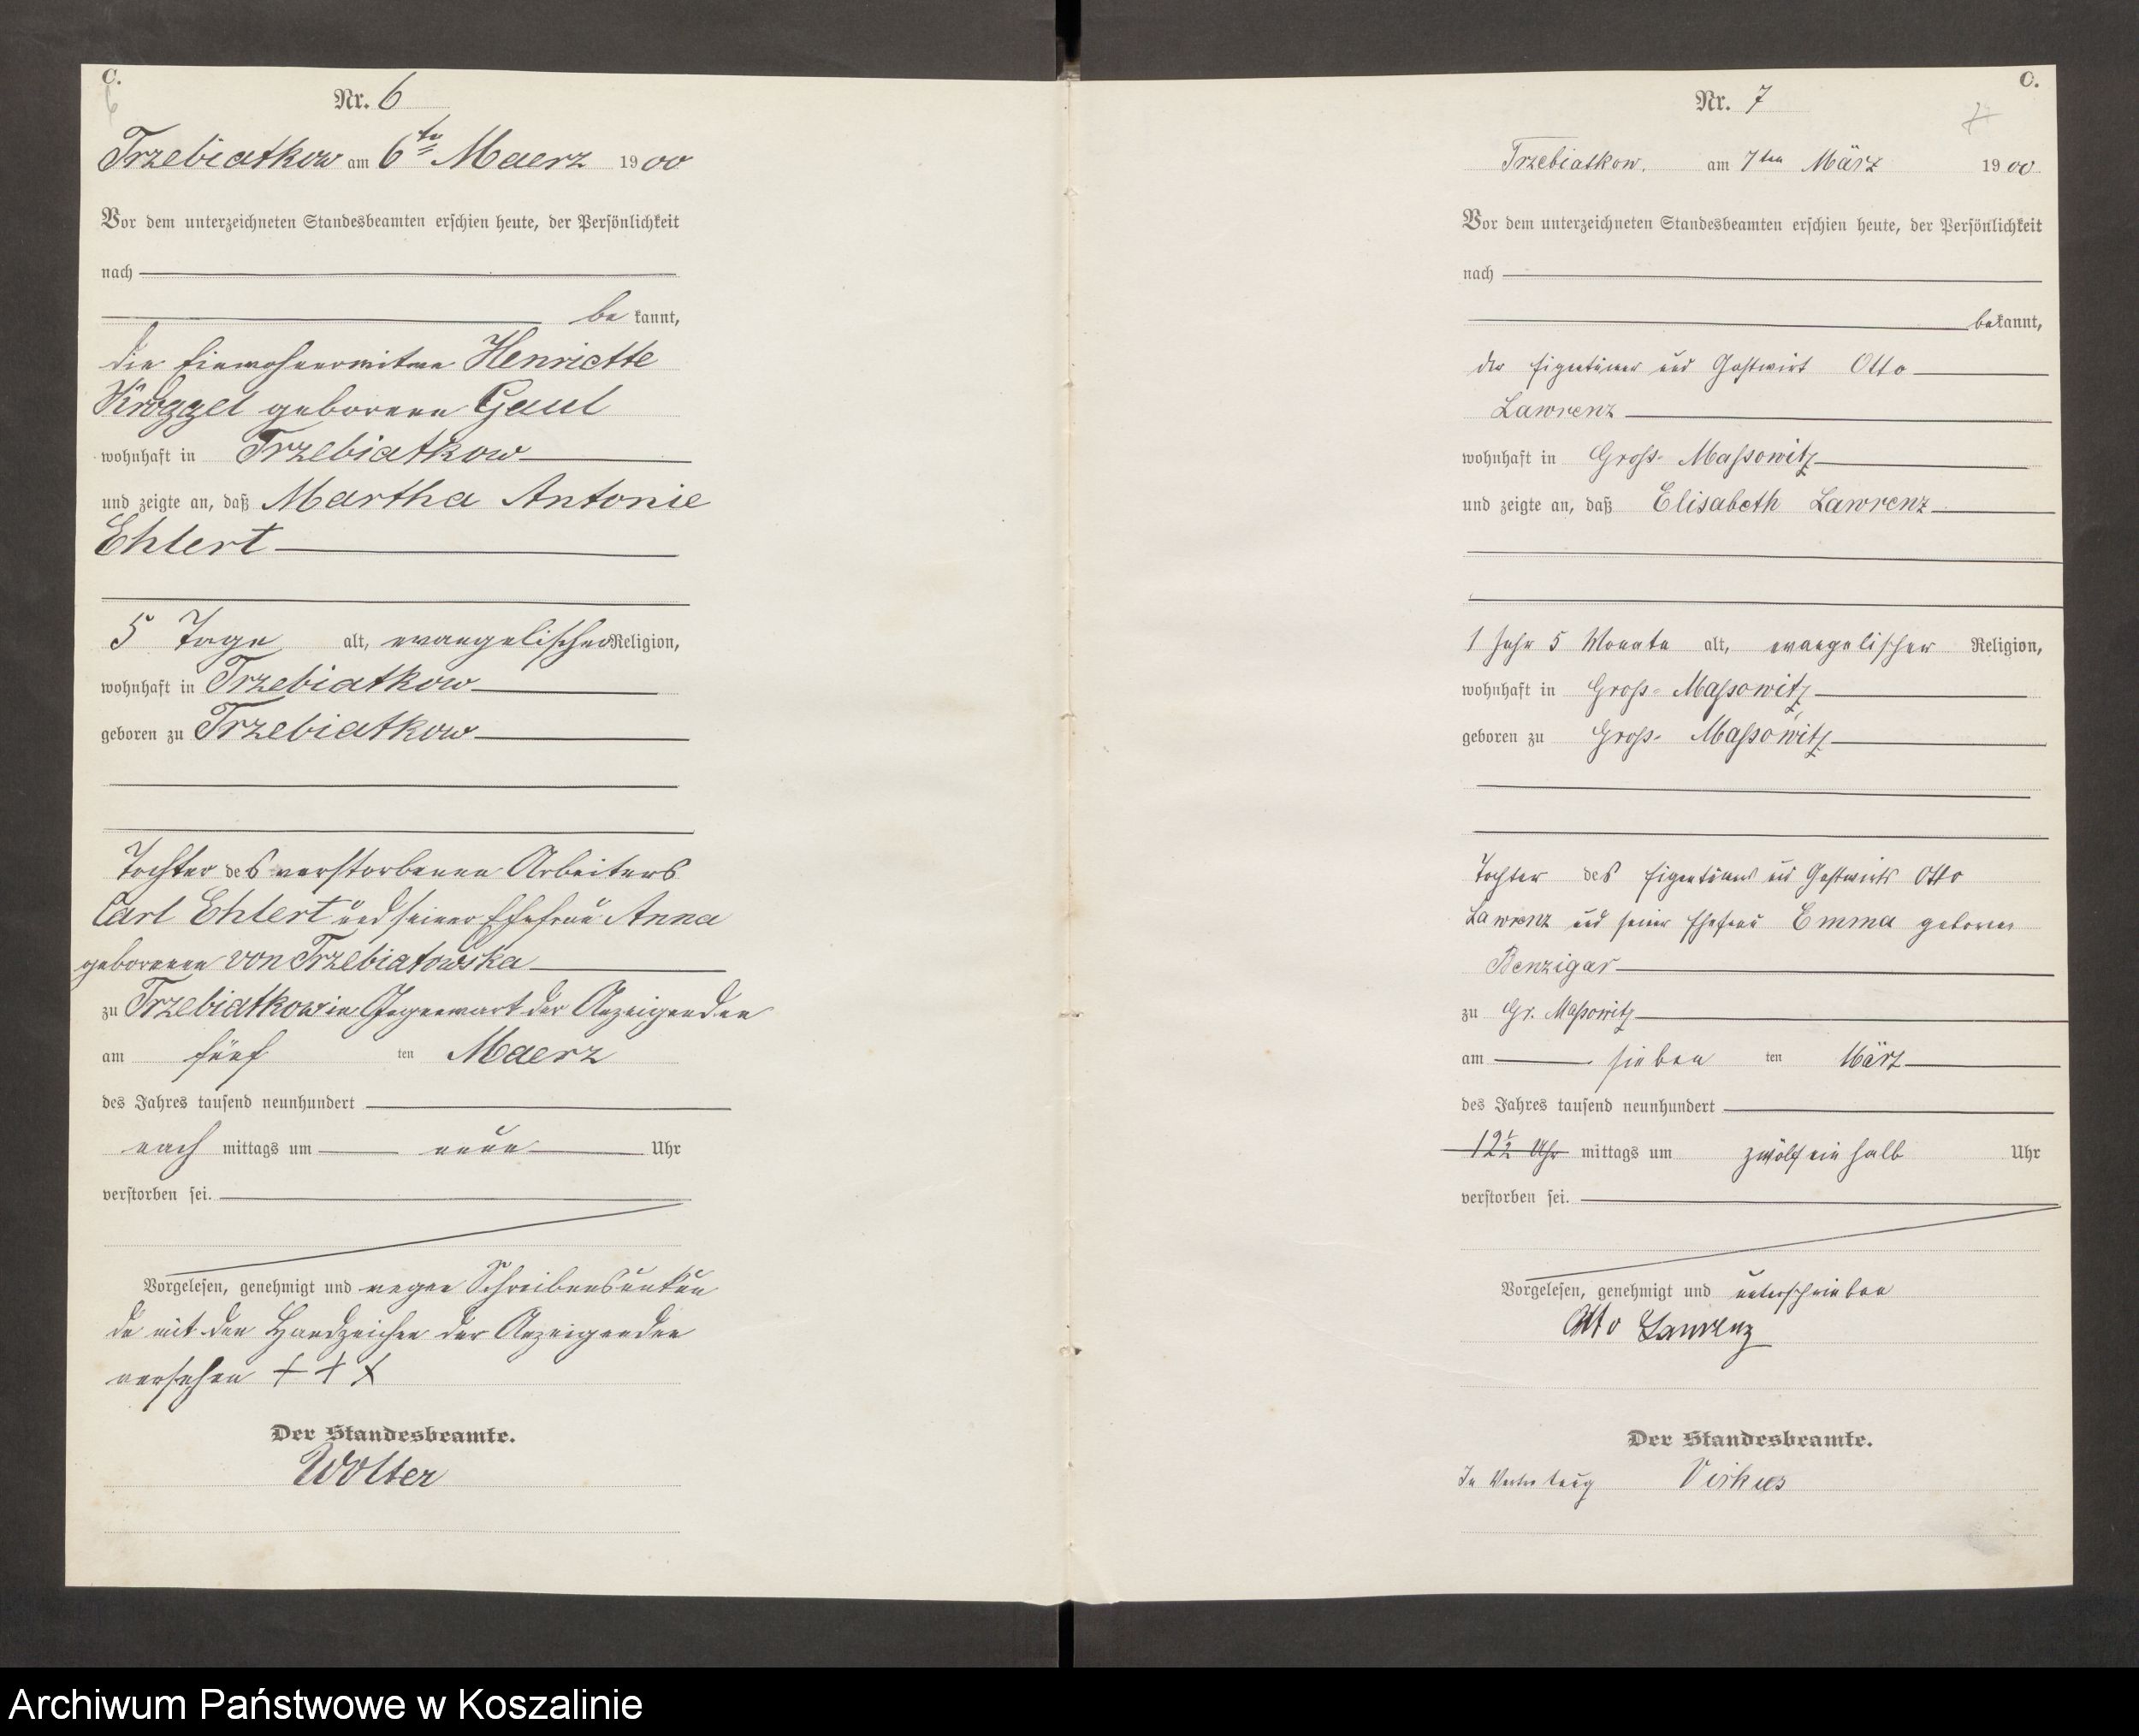 C.
6
Nr. 6
Trzebiatkow am 6ten Maerz 1900
Vor dem unterzeichneten Standesbeamten erschien heute, der Persönlichkeit
nach
be kannt,
die Einwohnerwitwe Henriette
Kroggel geborene Gaul
wohnhaft in Trzebiatkow
und zeigte an, daß Martha Antonie
Ehlert
5 Tage alt, evangelischer Religion,
wohnhaft in Trzebiatkow
geboren zu Trzebiatkow
Tochter des verstorbenen Arbeiters
Carl Ehlert und seiner Ehefrau Anna
geborenen von Trzebiatowska
zu Trzebiatkow in Gegenwart der Anzeigenden
am fünf ten Maerz
des Jahres tausend neunhundert
nach mittags um neun Uhr
verstorben sei.
Vorgelesen, genehmigt und wegen Schreibensunkun
de mit den Handzeichen der Anzeigenden
versehen + + +
Der Standesbeamte.
Wolter
C.
7
Nr. 7
Trzebiatkow. am 7ten März 1900
Vor dem unterzeichneten Standesbeamten erschien heute, der Persönlichkeit
nach
bekannt,
der Eigentümer und Gastwirt Otto
Lawrenz
wohnhaft in Groß-Maßowitz
und zeigte an, daß Elisabeth Lawrenz
1 Jahr 5 Monate alt, evangelischer Religion,
wohnhaft in Groß-Maßowitz
geboren zu Groß-Maßowitz
Tochter des Eigentümers und Gastwirts Otto
Lawrenz und seiner Ehefrau Emma geborenen
Benzigar
zu Gr. Maßowitz
am sieben ten März
des Jahres tausend neunhundert
12½ Uhr mittags um zwölf ein halb Uhr
verstorben sei.
Vorgelesen, genehmigt und unterschrieben
Otto Lawrenz
Der Standesbeamte.
In Vertretung Virkus
Archiwum Państwowe w Koszalinie